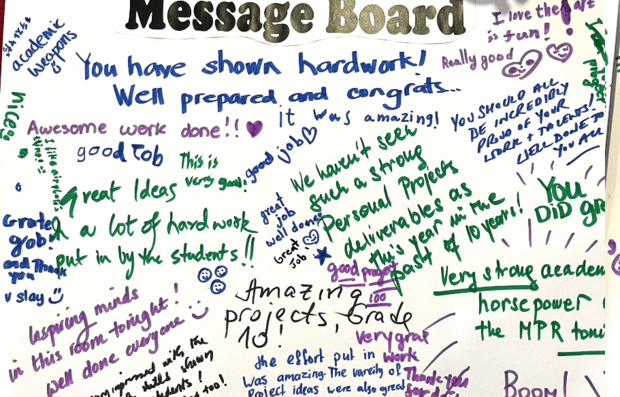 Message Board
academic
weapons
I love the
is fun!
Really good
You have shown hardwork!
Well prepared and congrats...
it was amazing!
YOU SHOULD ALL
BE INCREDIBLY
PROUD OF YOUR
WORK + TALENTS!
WELL DONE TO
YOU ALL
Awesome work done!!
good Job
This is
very good!
good job
We haven't seen
such a strong
Personal Projects
deliverables as
this year in the
past of 10 years!
Great Ideas
& a lot of hardwork
put in by the students!!
great
job
well done
Great
Job
YOU
DiD
Grate
Job
and Thank
you
v slay
good project
100
Very strong
horsepower
the MPR
Inspiring minds
in this room tonight!
well done everyone
Amazing
projects, Grade
10!
very grat
work
the effort put in
was amazing. The vareity of
Project ideas were also great
Thank you
BOOM!
with the
students!
too!